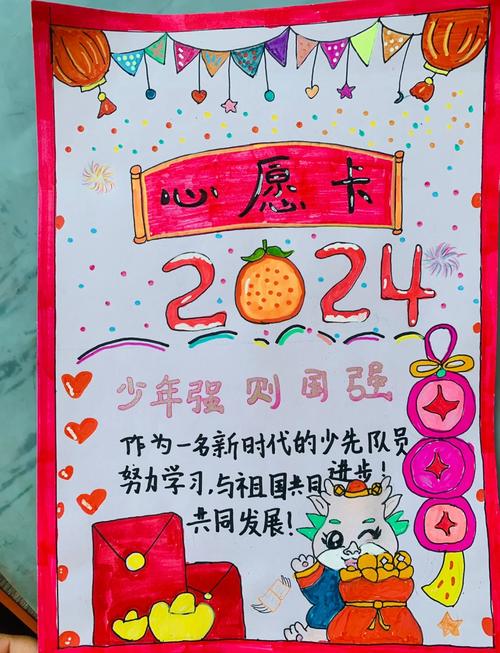 心愿卡
2024
少年强则国强
作为一名新时代的少先队员
努力学习,与祖国共同进步!
共同发展!